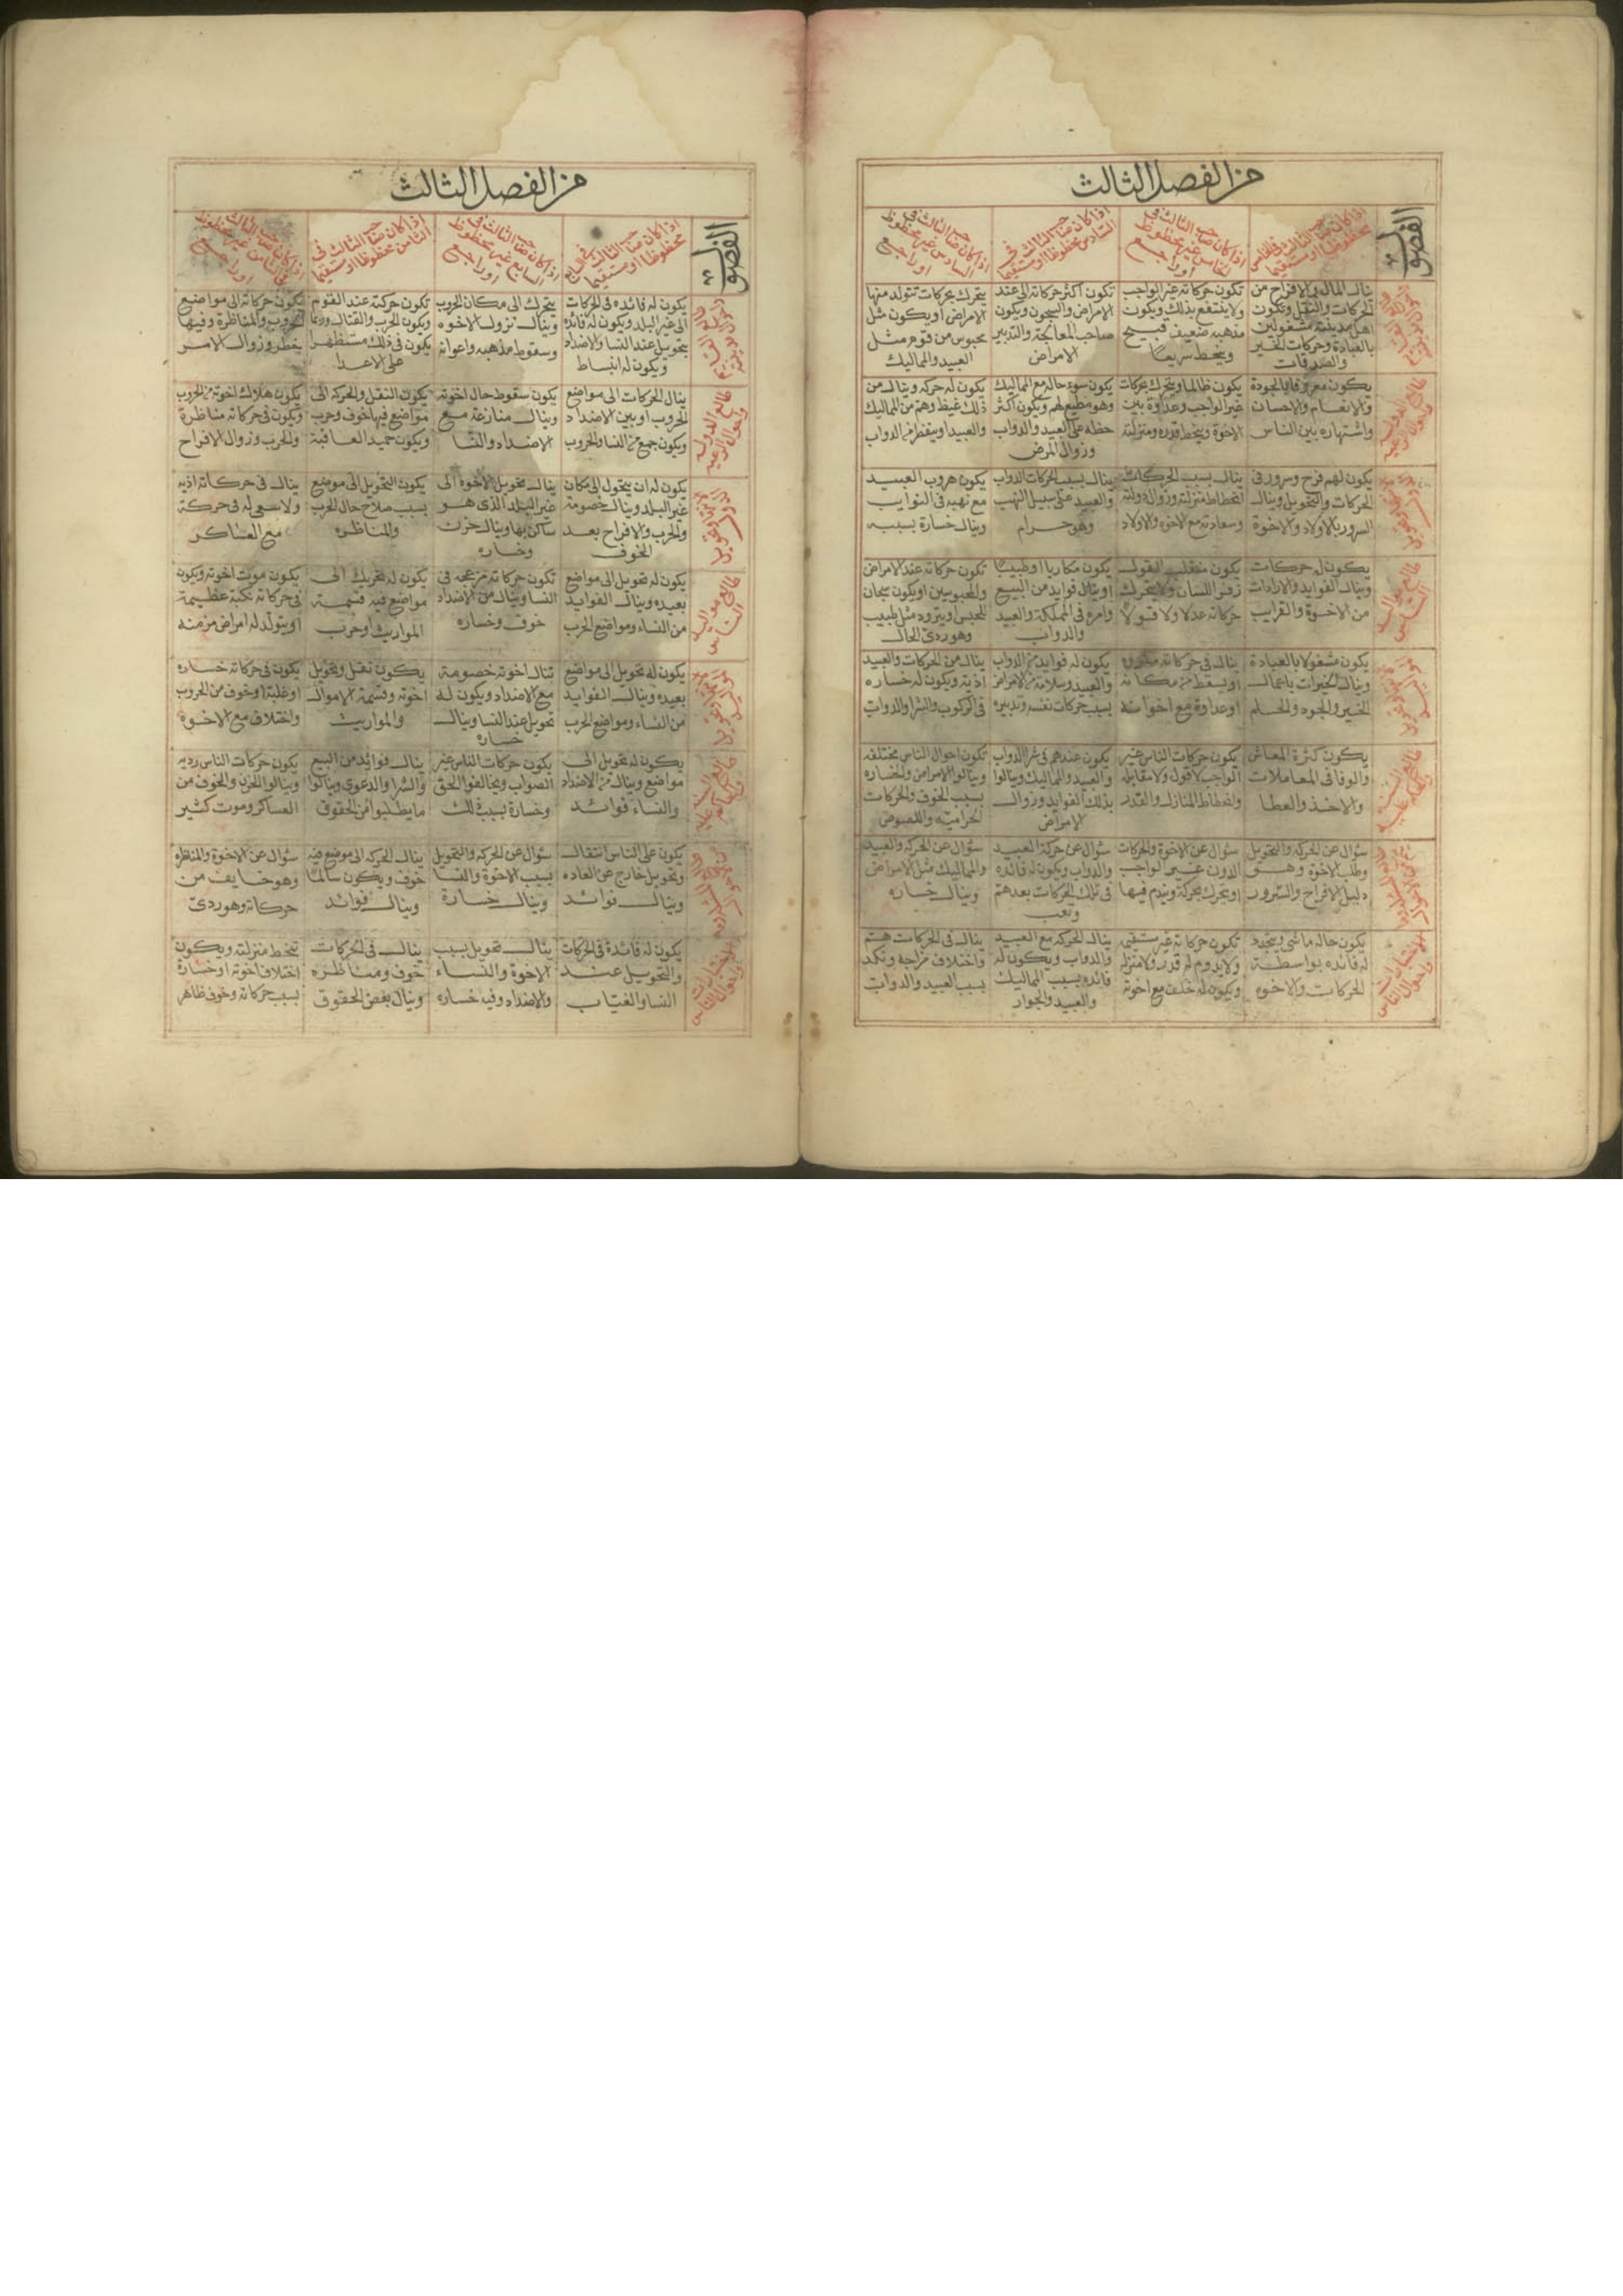 من الفصل الثالث
الفصول
اذا كان صاحب الثالث في الخامس
محظوظا او مستقيما
اذا كان صاحب الثالث في
الخامس غير محظوظ
او راجع
اذا كان صاحب الثالث في
السادس محظوظا او مستقيما
اذا كان صاحب الثالث في
السادس غير محظوظ
او راجع
ينال المال والافراح من
الحركات والنقل وتكون
اهل مدينته مشغولين
بالعبادة وحركات الخير
والصدقات
تكون حركاته غير الواجب
ولا ينتفع بذلك ويكون
مذهبه ضعيف قبيح
وينحط سريعا
تكون اكثر حركاته الى عند
الامراض والسجون ويكون
صاحب المعالجة والتدبير
الامراض
يتحرك بحركات تتولد منها
الامراض او يكون مثل
محبوس من قوم مثل
العبيد والمماليك
طالع الدوله
واحوال الرعيه
يكون معروفا بالجودة
والانعام والاحسان
واشتهاره بين الناس
يكون ظالما ويتحرك بحركات
غير الواجب وعداوة بين
الاخوة وينحط قدره ومنزلته
يكون سوء حاله مع المماليك
وهو مطيع لهم ويكون اكثر
حظه على العبيد والدواب
وزوال المرض
يكون له حركه وينال من
ذلك غيظ وهم من المماليك
والعبيد او يتفطر من الدواب
يكون لهم فرح وسرور في
الحركات والتحويل وينال
السرور بالاولاد والاخوة
ينال بسبب الحركات
انحطاط منزلته وزوال دولته
وسعادته مع الاخوه والاولاد
ينال بسبب الحركات الدواب
والعبيد على سبيل النهب
وهو حرام
يكون هروب العبيد
مع نهبه في النوايب
وينال خسارة بسببه
طالع مواليد
الناس
يكون له حركات
وينال الفوايد والارادات
من الاخوة والقرايب
يكون منقلب القول
زفر اللسان ولا يتحرك
حركاته عدلا ولا قبولا
يكون مكاريا او طبيبا
او ينال فوايد من البيع
وامره في المملكة والعبيد
والدواب
تكون حركاته عند الامراض
والمحبوسين او يكون سجان
للحبس او يتردد مثل طبيب
وهو ردئ الحال
يكون مشغولا بالعبادة
وينال الخيرات باعمال
الخير والجود والحلم
ينال في حركاته
او يسقط من مكانه
او عداوة مع اخوانه
يكون له فوايد من الدواب
والعبيد وسلامة من الامراض
بسبب حركات نفسه وتدبيره
ينال من الحركات والعبيد
اذية ويكون له خساره
في الركوب والشرا والدواب
يكون كثرة المعاش
والوفا في المعاملات
والاخذ والعطا
يكون حركات الناس غير
الواجب لا قول ولا مقابله
وانحطاط المنازل والقدر
يكون عندهم في شرا الدواب
والعبيد والمماليك وينالوا
بذلك الفوايد وزوال
الامراض
تكون احوال الناس مختلفه
وينالوا الامراض والخساره
بسبب الخوف والحركات
الحراميه واللصوص
سؤال عن الحركه والتحويل
وطلب الاخوة وهو
دليل الافراح والسرور
سؤال عن الاخوة والحركات
الدون غير الواجب
او يتحرك بحركة ويندم فيها
سؤال عن حركة العبيد
والدواب ويكون له فائده
في تلك الحركات بعد هم
وتعب
سؤال عن الحركه والعبيد
والمماليك مثل الامراض
وينال خساره
الاختيارات
واحوال الناس
يكون حاله ماشي ويتجدد
له فائده بواسطة
الحركات والاخوه
تكون حركاته غير مستقيمه
ولا يدوم له قدر ولا منزله
ويكون له خلف مع اخوته
ينال الحركه مع العبيد
والدواب ويكون له
فائده بسبب المماليك
والعبيد والجوار
ينال في الحركات هم
واختلاف مزاجه ونكد
بسبب العبيد والدواب
من الفصل الثالث
الفصول
اذا كان صاحب الثالث في السابع
محظوظا او مستقيما
اذا كان صاحب الثالث في
السابع غير محظوظ
او راجع
اذا كان صاحب الثالث في
الثامن محظوظا او مستقيما
اذا كان صاحب الثالث
في الثامن غير محظوظ
او راجع
يكون له فائده في الحركات
الى غير البلد ويكون له فائده
بتحويل عند النسا والاضداد
ويكون له انبساط
يتحرك الى مكان الحروب
وينال نزول الاخوه
وسقوط مذهبه واعوانه
تكون حركته عند القوم
ويكون الحرب والقتال وربما
يكون في ذلك مستظهرا
على الاعدا
تكون حركاته الى مواضع
الحروب والمناظرة وفيها
يخطر وزوال الامر
طالع الدوله
واحوال الرعيه
ينال الحركات الى مواضع
الحروب او بين الاضداد
ويكون جمع من النسا والحروب
يكون سقوط حال اخوته
وينال منازعة مع
الاضداد والنسا
يكون النقل والحركه الى
مواضع فيها خوف وحرب
ويكون حميد العاقبة
يكون هلاك اخوته من الحروب
ويكون في حركاته مناظرة
والحرب وزوال الافراح
يكون له ان يتحول الى مكان
غير البلد وينال خصومة
والحرب والافراح بعد
الخوف
ينال تحويل الاخوه الى
غير البلد الذي هو
ساكن بها وينال حزن
وخساره
يكون التحويل الى موضع
بسبب صلاح حال الحرب
والمناظره
ينال في حركاته اذيه
ولا سعى له في حركة
مع العساكر
طالع مواليد
الناس
يكون له تحويل الى مواضع
بعيده وينال الفوايد
من النساء ومواضع الحرب
تكون حركاته مزعجه في
النسا وينال من الاضداد
خوف وخساره
يكون له تحريك الى
مواضع فيه قسمة
المواريث او حرب
يكون موت اخوته ويكون
في حركاته نكبة عظيمة
او يتولد له امراض مزمنه
يكون له تحويل الى مواضع
بعيده وينال الفوايد
من النساء ومواضع الحرب
تنال اخوته خصومة
مع الاضداد ويكون له
تحويل عند النسا وينال
خساره
يكون نقل وتحويل
اخوته وقسمة الاموال
والمواريث
يكون في حركاته خساره
او غلبة او خوف من الحروب
واختلاف مع الاخوة
يكون له تحويل الى
مواضع وينال من الاضداد
والنساء فوائد
يكون حركات الناس غير
الصواب ويخالفوا الحق
وخسارة بسبب ذلك
ينال فوائد من البيع
والشرا والدعوى وينالوا
ما يطلبوا من الحقوق
يكون حركات الناس رديه
وينالوا الحزن والخوف من
العساكر وموت كثير
يكون على الناس انتقال
وتحويل خارج عن العاده
وينال فوائد
سؤال عن الحركه والتحويل
بسبب الاخوة والنسا
وينال خسارة
ينال الحركه الى موضع فيه
خوف ويكون سالما
وينال فوائد
سؤال عن الاخوة والمناظره
وهو خايف من
حركاته وهو ردئ
الاختيارات
واحوال الناس
يكون له فائدة في الحركات
والتحويل عند
النسا والغياب
ينال تحويل بسبب
الاخوة والنساء
والاضداد وفيه خساره
ينال في الحركات
خوف ومناظره
وينال بعض الحقوق
تنحط منزلته ويكون
اختلاف اخوته او خسارة
بسبب حركاته وخوف ظاهر